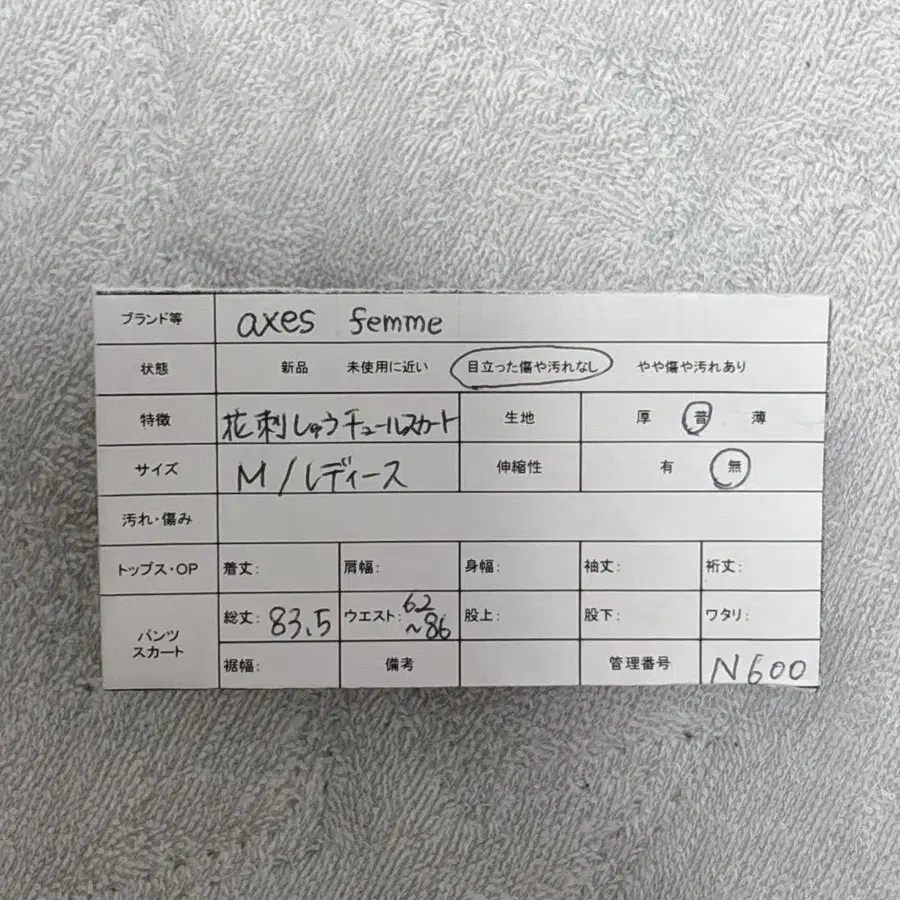 ブランド等 axes femme
状態 新品 未使用に近い 目立った傷や汚れなし やや傷や汚れあり
特徴 花刺しゅうチュールスカート 生地 厚 普 薄
サイズ M/レディース 伸縮性 有 無
汚れ・傷み
トップス・OP 着丈: 肩幅: 身幅: 袖丈: 裄丈:
パンツ スカート 総丈: 83.5 ウエスト: 62~86 股上: 股下: ワタリ:
裾幅: 備考 管理番号 N600